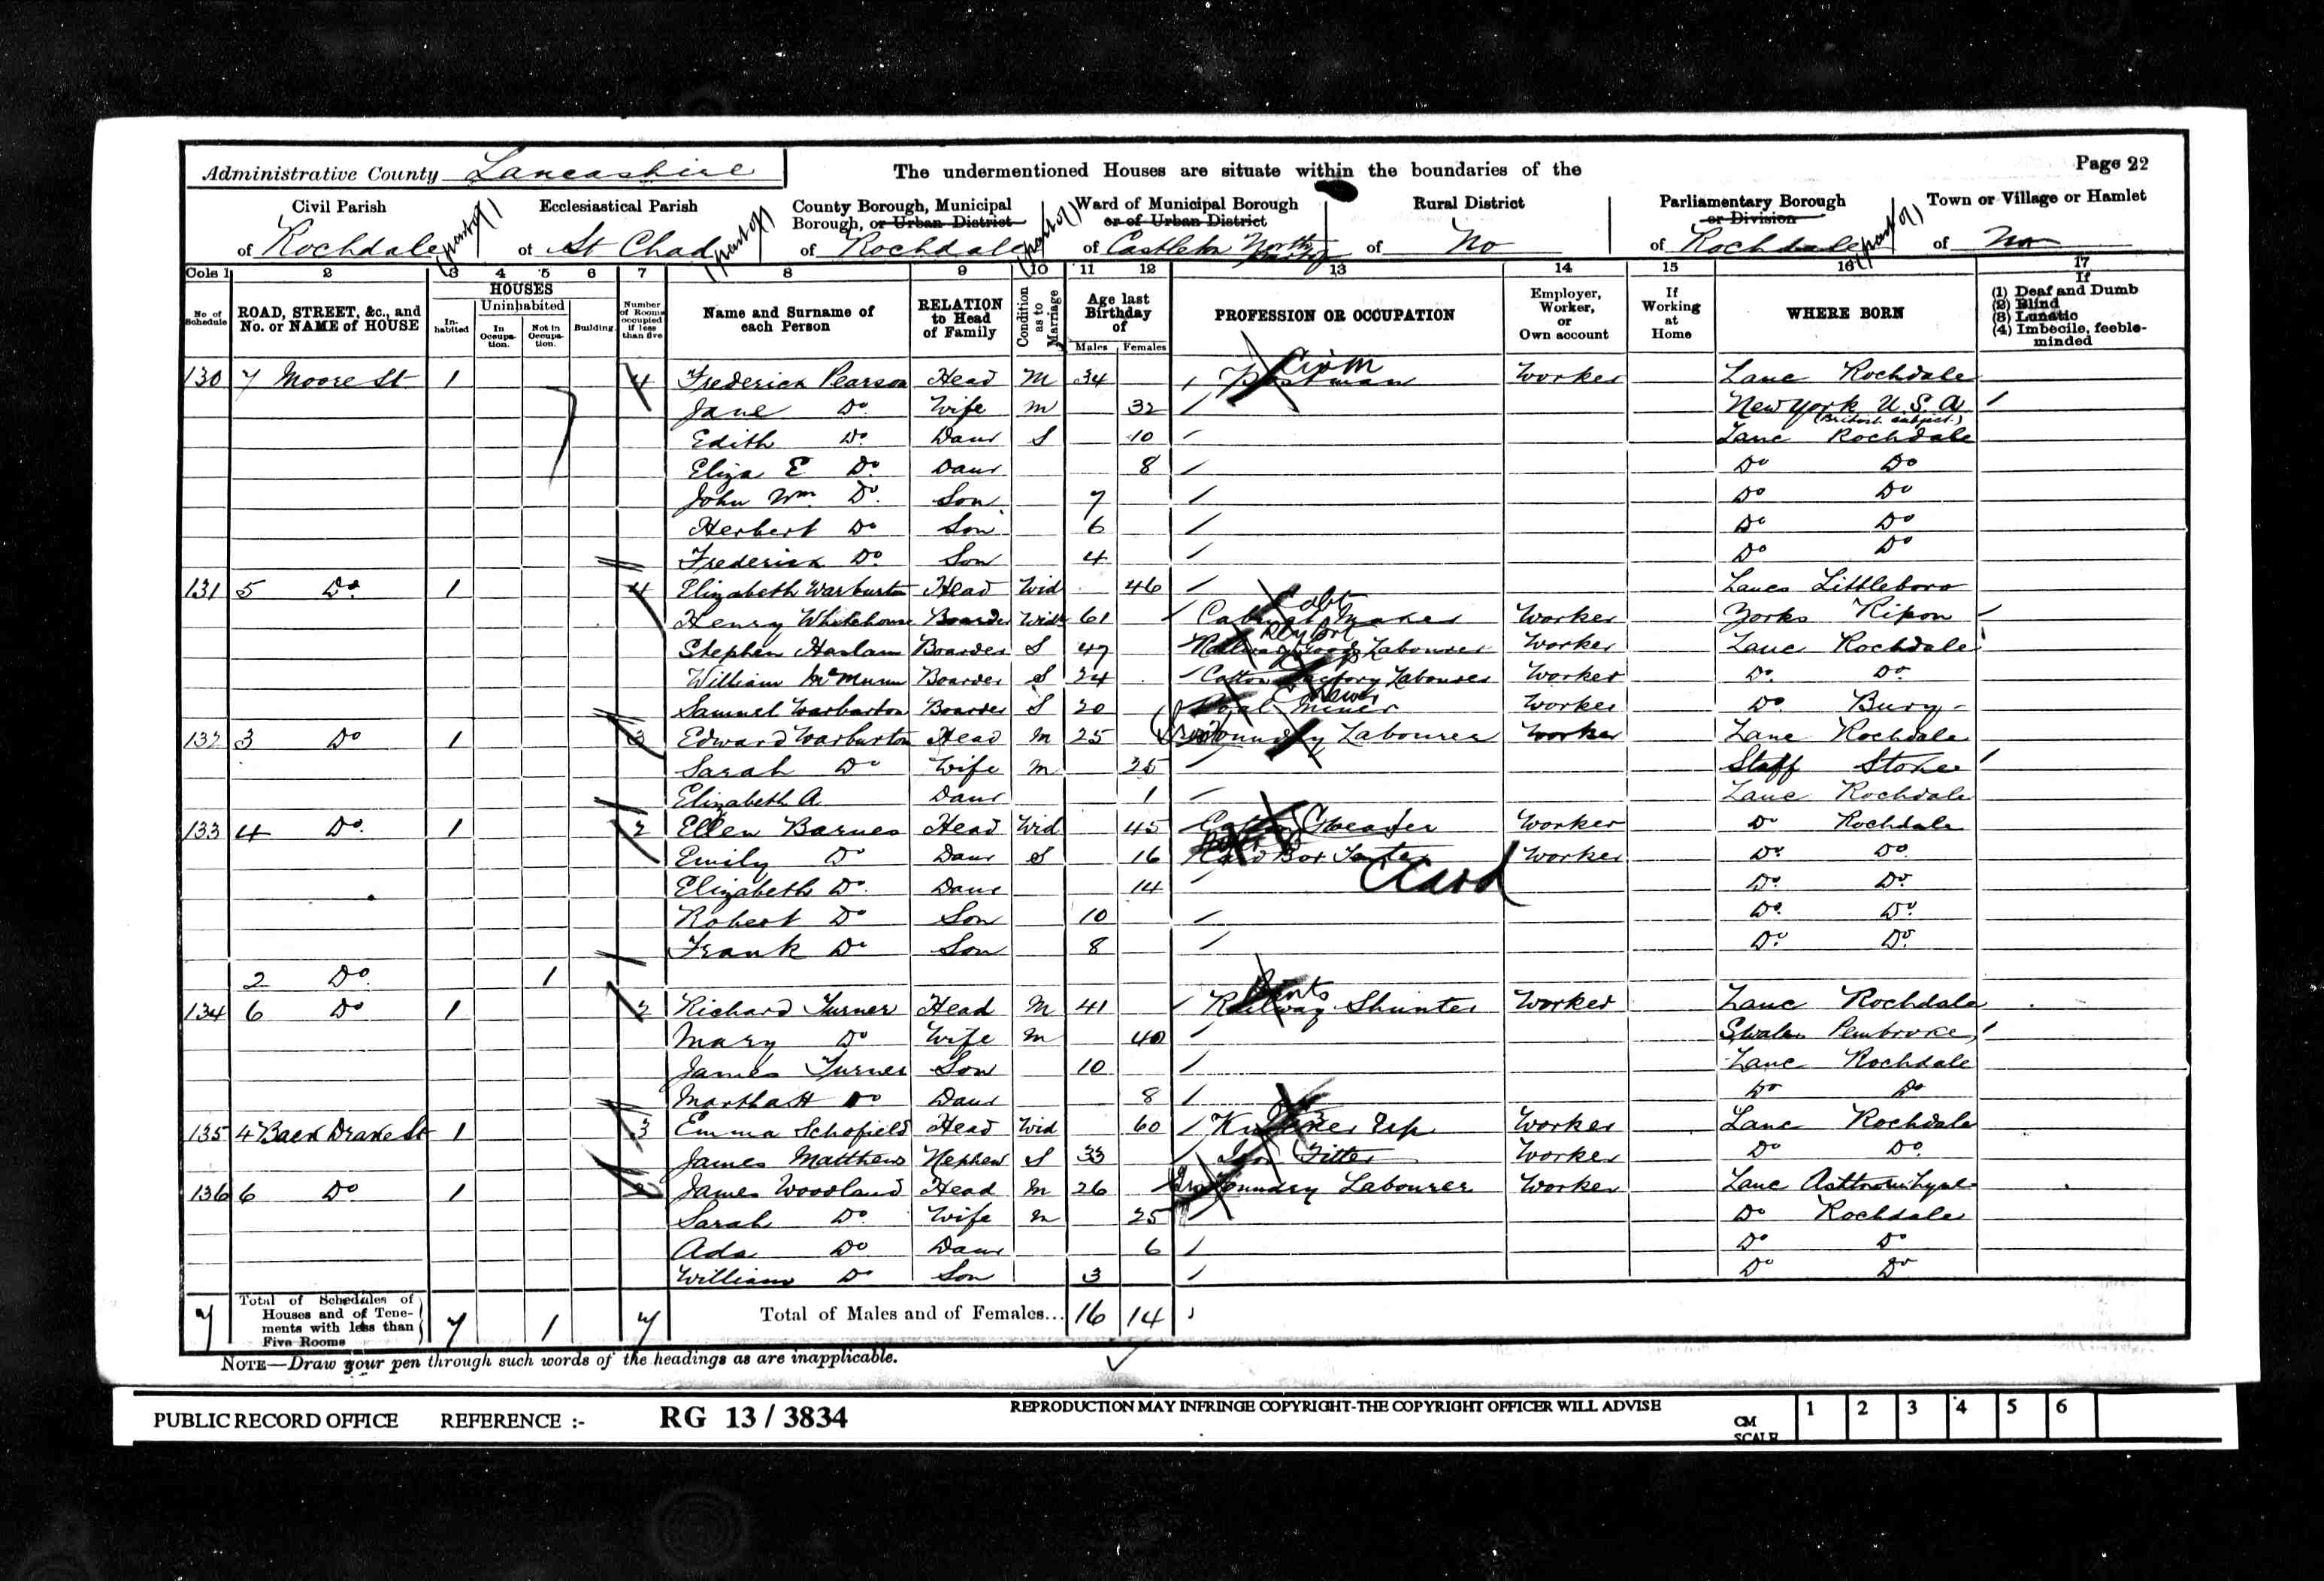 Administrative County Lancashire
The undermentioned Houses are situate within the boundaries of the
Page 22
Civil Parish of Rochdale (part of)
Ecclesiastical Parish of St Chad (part of)
County Borough, Municipal Borough, or Urban District of Rochdale (part of)
Ward of Municipal Borough or of Urban District of Castleton North
Rural District of No
Parliamentary Borough or Division of Rochdale (part of)
Town or Village or Hamlet of No
Cols 1 2 3 4 5 6 7 8 9 10 11 12 13 14 15 16 17
No of Schedule
ROAD, STREET, &c., and No. or NAME of HOUSE
HOUSES
In-habited
Uninhabited
In Occupa-tion.
Not in Occupa-tion.
Building
Number of Rooms occupied if less than five
Name and Surname of each Person
RELATION to Head of Family
Condition as to Marriage
Age last Birthday of
Males Females
PROFESSION OR OCCUPATION
Employer, Worker, or Own account
If Working at Home
WHERE BORN
If
(1) Deaf and Dumb
(2) Blind
(3) Lunatic
(4) Imbecile, feeble-minded
130 7 Moore St 1 4 Frederick Pearson Head M 34 Postman Worker Lanc Rochdale
Jane Do Wife M 32 New York U.S.A (British subject)
Edith Do Daur S 10 Lanc Rochdale
Eliza E Do Daur 8 Do Do
John Wm Do Son 7 Do Do
Herbert Do Son 6 Do Do
Frederick Do Son 4 Do Do
131 5 Do 1 4 Elizabeth Warburton Head Wid 46 Lancs Littleboro
Henry Whitehouse Boarder Widr 61 Cabinet Maker Worker Yorks Ripon
Stephen Haslam Boarder S 47 Railway Goods Labourer Worker Lanc Rochdale
William Boarder S 24 Cotton Factory Labourer Worker Do Do
Samuel Warburton Boarder S 20 Coal Miner Hewer Worker Do Bury
132 3 Do 1 3 Edward Warburton Head M 25 Iron Foundry Labourer Worker Lanc Rochdale
Sarah Do Wife M 25 Staff Stoke
Elizabeth A Daur 1 Lanc Rochdale
133 4 Do 1 2 Ellen Barnes Head Wid 45 Cotton Weaver Worker Do Rochdale
Emily Do Daur S 16 Card Box Tenter Worker Do Do
Card
Elizabeth Do Daur 14 Do Do
Robert Do Son 10 Do Do
Frank Do Son 8 Do Do
2 Do 1
134 6 Do 1 2 Richard Turner Head M 41 Railway Shunter Worker Lanc Rochdale
Mary Do Wife M 40 S Wales Pembroke
James Turner Son 10 Lanc Rochdale
Martha H Do Daur 8 Do Do
135 4 Back Drake St 1 3 Emma Schofield Head Wid 60 Worker Lanc Rochdale
James Matthews Nephew S 33 Iron Fitter Worker Do Do
136 6 Do 1 James Woodland Head M 26 Iron Foundry Labourer Worker Lanc
Sarah Do Wife M 25 Do Rochdale
Ada Do Daur 6 Do Do
William Do Son 3 Do Do
7 Total of Schedules of Houses and of Tene-ments with less than Five Rooms 7 1 7 Total of Males and of Females... 16 14
NOTE—Draw your pen through such words of the headings as are inapplicable.
PUBLIC RECORD OFFICE REFERENCE :- RG 13 / 3834
REPRODUCTION MAY INFRINGE COPYRIGHT-THE COPYRIGHT OFFICER WILL ADVISE
CM SCALE 1 2 3 4 5 6